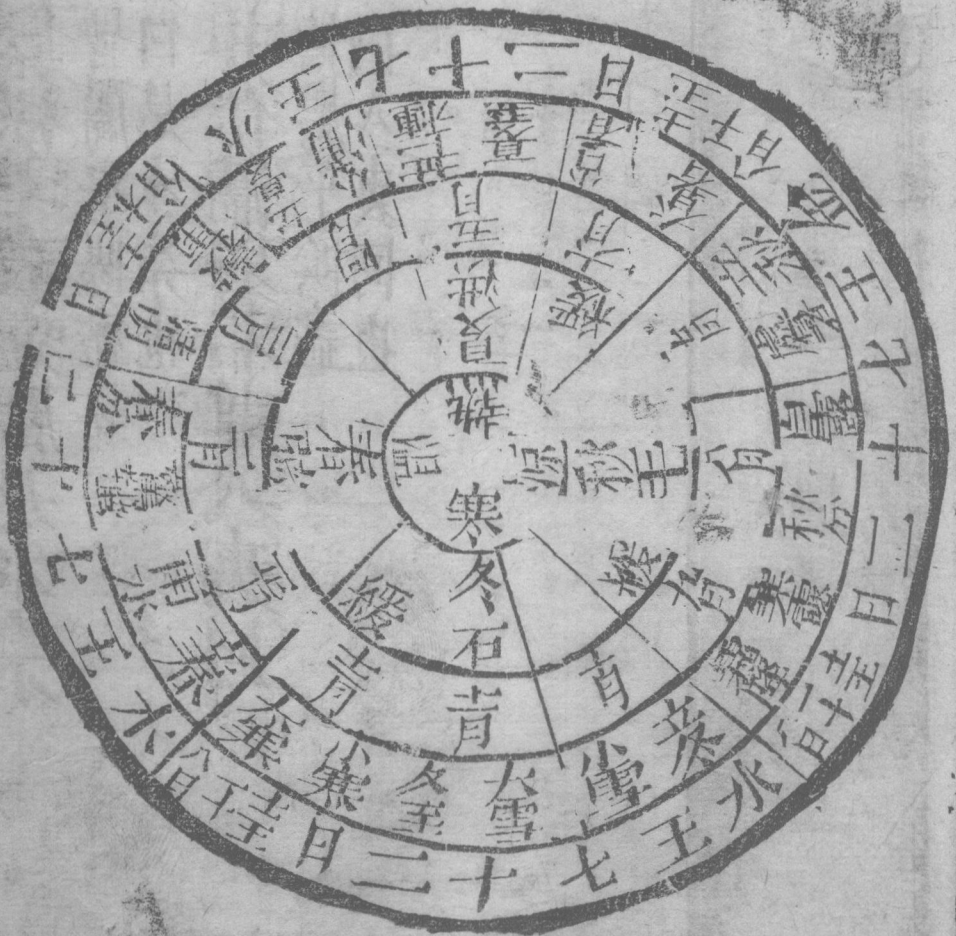 木王七十二日
土王十八日
火王七十二日
土王十八日
金王七十二日
土王十八日
水王七十二日
土王十八日
立春
雨水
驚蟄
春分
清明
穀雨
立夏
小滿
芒種
夏至
小暑
大暑
立秋
處暑
白露
秋分
寒露
霜降
立冬
小雪
大雪
冬至
小寒
大寒
正月
二月
三月
四月
五月
六月
七月
八月
九月
十月
洪
緩
毛
緩
石
緩
春
夏
秋
冬
溫
熱
寒